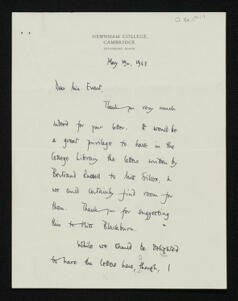 NEWNHAM COLLEGE,
CAMBRIDGE
May 9th, 1963
Dear Miss Ewart,
Thank you very much
indeed for your letter. It would be
a great privilege to have in the
College Library the letters written by
Bertrand Russell to Miss Silcox, &
we could certainly find room for
them. Thank you for suggesting
this to Miss Blackburn.
While we should be delighted
to have the letters here, though, I